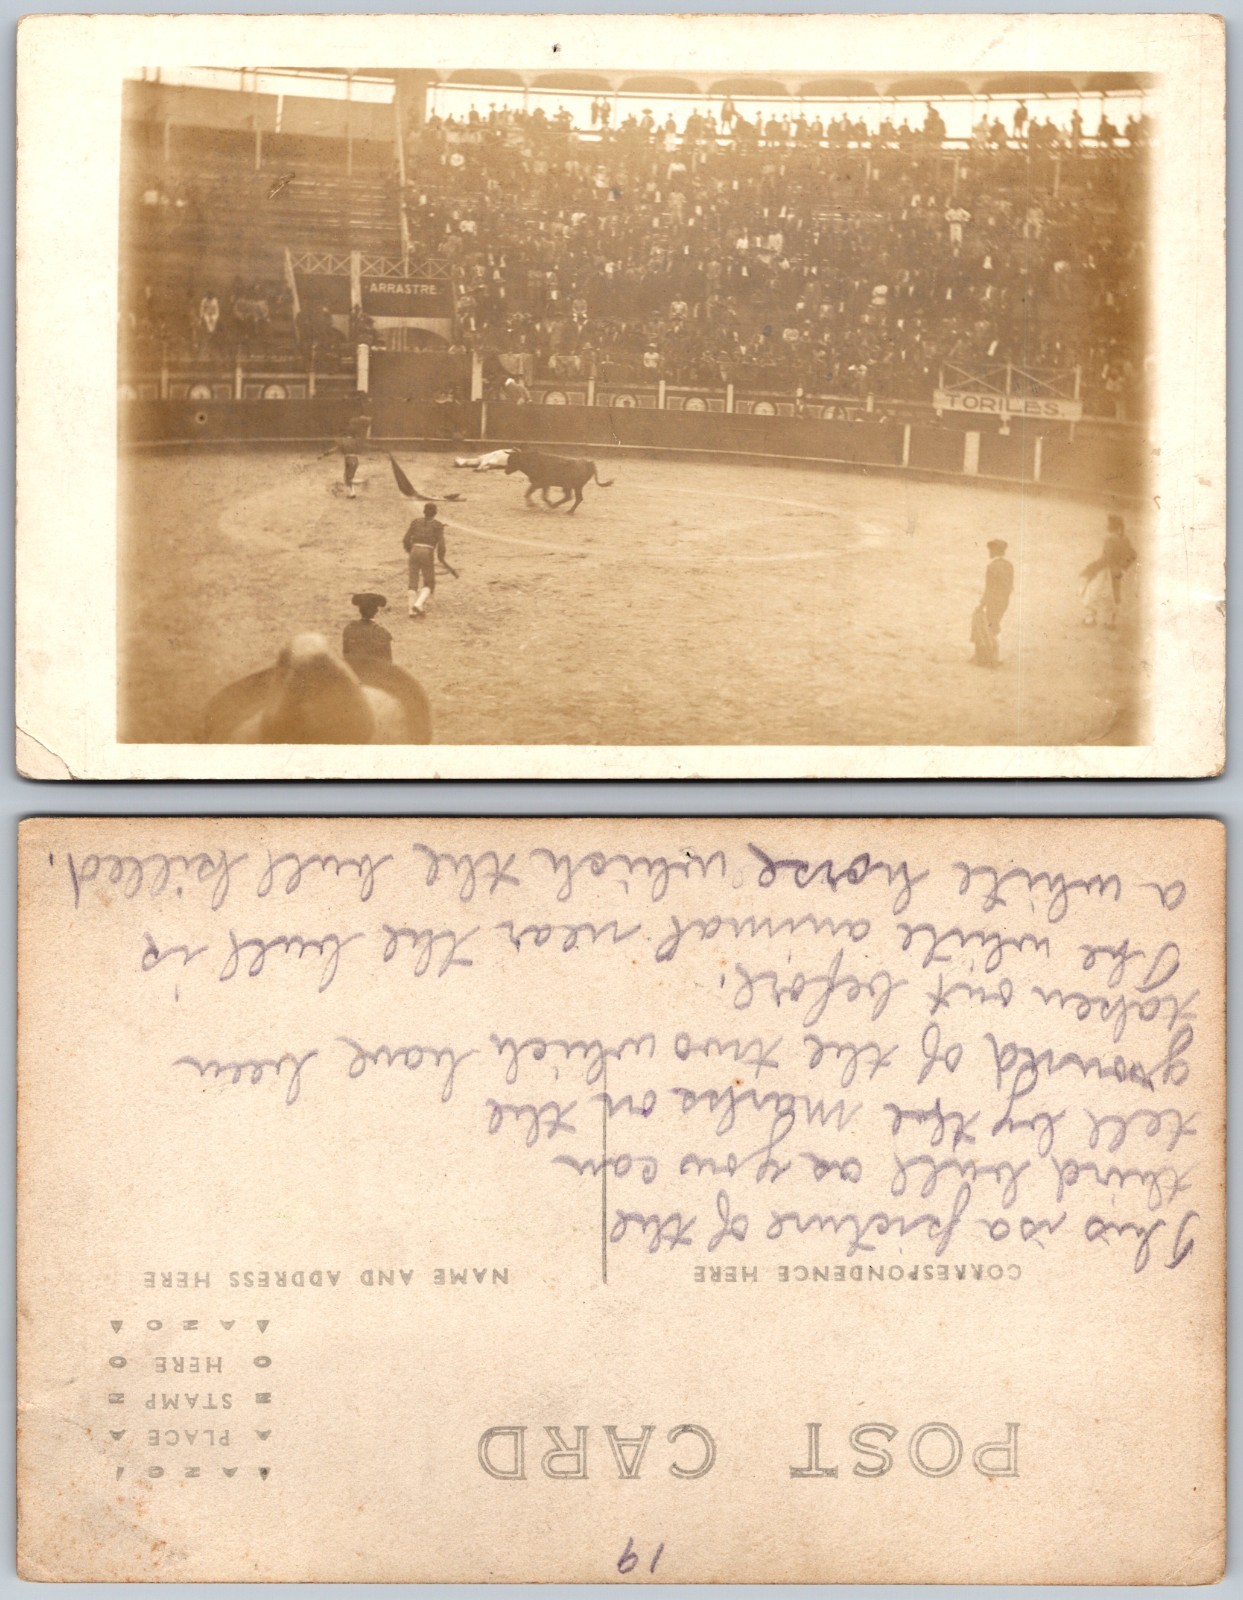 ARRASTRE
TORILES.
19
POST CARD
AZO
PLACE
STAMP
HERE
AZO
CORRESPONDENCE HERE
NAME AND ADDRESS HERE
This is a picture of the
third bull as you can
tell by the marks on the
ground of the two which have been
taken out before.
The white animal near the bull is
a white horse which the bull killed.